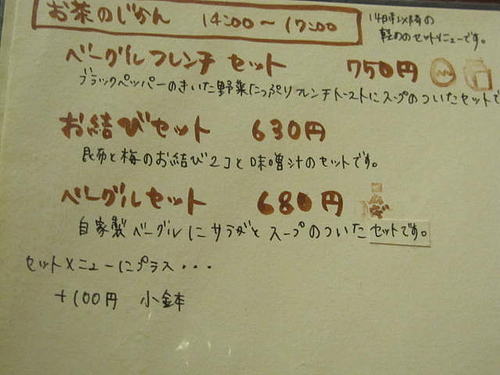 お茶のじかん 14:00～17:00
14時以降の
軽めのセットメニューです。
ベーグルフレンチセット 750円
ブラックペッパーのきいた野菜たっぷりフレンチトーストにスープのついたセットで
お結びセット 630円
昆布と梅のお結び2コと味噌汁のセットです。
ベーグルセット 680円
自家製ベーグルにサラダとスープのついたセットです。
セットメニューにプラス・・・
+100円 小鉢